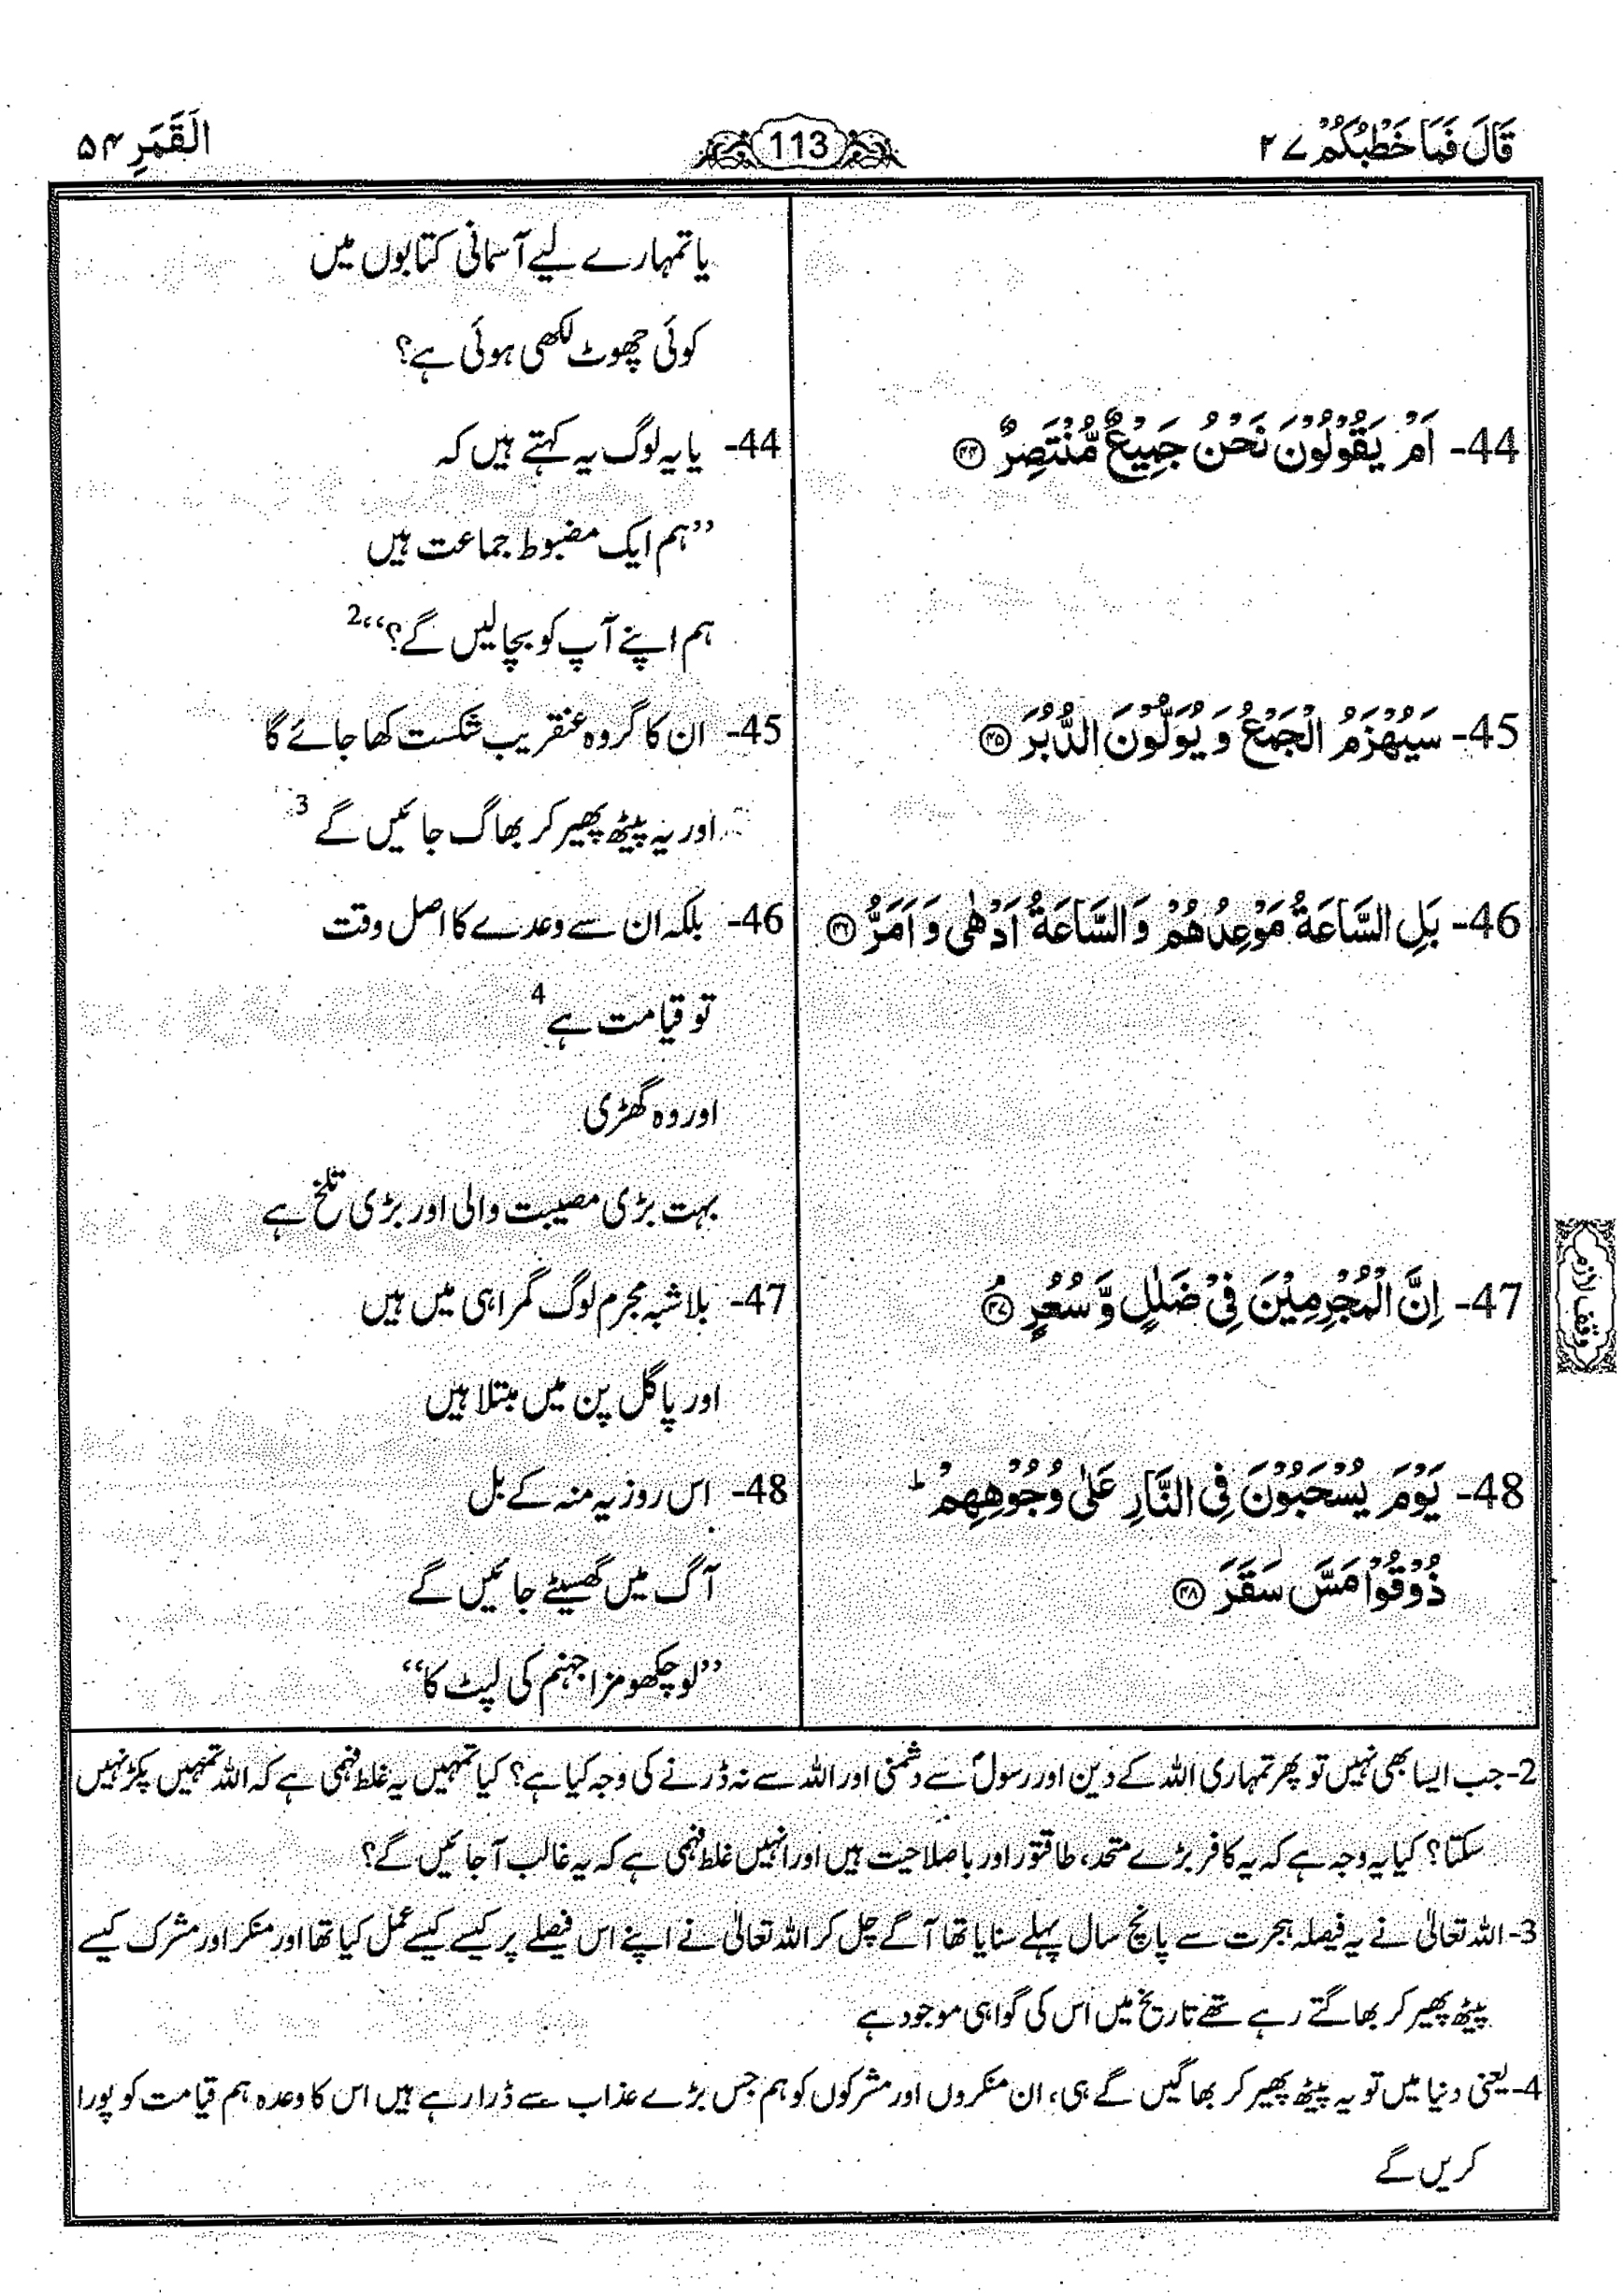 قَالَ فَمَا خَطْبُكُمْ ۲۷
113
اَلْقَمَرِ ۵۴
یا تمہارے لیے آسمانی کتابوں میں
کوئی چھوٹ لکھی ہوئی ہے؟
44- اَمْ يَقُوْلُوْنَ نَحْنُ جَمِيْعٌ مُّنْتَصِرٌ ۴۴
44- یا یہ لوگ یہ کہتے ہیں کہ
’’ہم ایک مضبوط جماعت ہیں
ہم اپنے آپ کو بچا لیں گے؟‘‘2
45- سَيُهْزَمُ الْجَمْعُ وَ يُوَلُّوْنَ الدُّبُرَ ۴۵
45- ان کا گروہ عنقریب شکست کھا جائے گا
اور یہ پیٹھ پھیر کر بھاگ جائیں گے 3
46- بَلِ السَّاعَةُ مَوْعِدُهُمْ وَ السَّاعَةُ اَدْهٰى وَ اَمَرُّ ۴۶
46- بلکہ ان سے وعدے کا اصل وقت
تو قیامت ہے 4
اور وہ گھڑی
بہت بڑی مصیبت والی اور بڑی تلخ ہے
47- اِنَّ الْمُجْرِمِيْنَ فِيْ ضَلٰلٍ وَّ سُعُرٍ ۴۷ م
47- بلاشبہ مجرم لوگ گمراہی میں ہیں
وقف لازم
اور پاگل پن میں مبتلا ہیں
48- يَوْمَ يُسْحَبُوْنَ فِى النَّارِ عَلٰى وُجُوْهِهِمْ ؕ
ذُوْقُوْا مَسَّ سَقَرَ ۴۸
48- اس روز یہ منہ کے بل
آگ میں گھسیٹے جائیں گے
’’لو چکھو مزا جہنم کی لپٹ کا‘‘
2- جب ایسا بھی نہیں تو پھر تمہاری اللہ کے دین اور رسولؐ سے دشمنی اور اللہ سے نہ ڈرنے کی وجہ کیا ہے؟ کیا تمہیں یہ غلط فہمی ہے کہ اللہ تمہیں پکڑ نہیں
سکتا؟ کیا یہ وجہ ہے کہ یہ کافر بڑے متحد، طاقتور اور باصلاحیت ہیں اور انہیں غلط فہمی ہے کہ یہ غالب آ جائیں گے؟
3- اللہ تعالیٰ نے یہ فیصلہ ہجرت سے پانچ سال پہلے سنایا تھا آگے چل کر اللہ تعالیٰ نے اپنے اس فیصلے پر کیسے کیسے عمل کیا تھا اور منکر اور مشرک کیسے
پیٹھ پھیر کر بھاگتے رہے تھے تاریخ میں اس کی گواہی موجود ہے
4- یعنی دنیا میں تو یہ پیٹھ پھیر کر بھاگیں گے ہی، ان منکروں اور مشرکوں کو ہم جس بڑے عذاب سے ڈرا رہے ہیں اس کا وعدہ ہم قیامت کو پورا
کریں گے